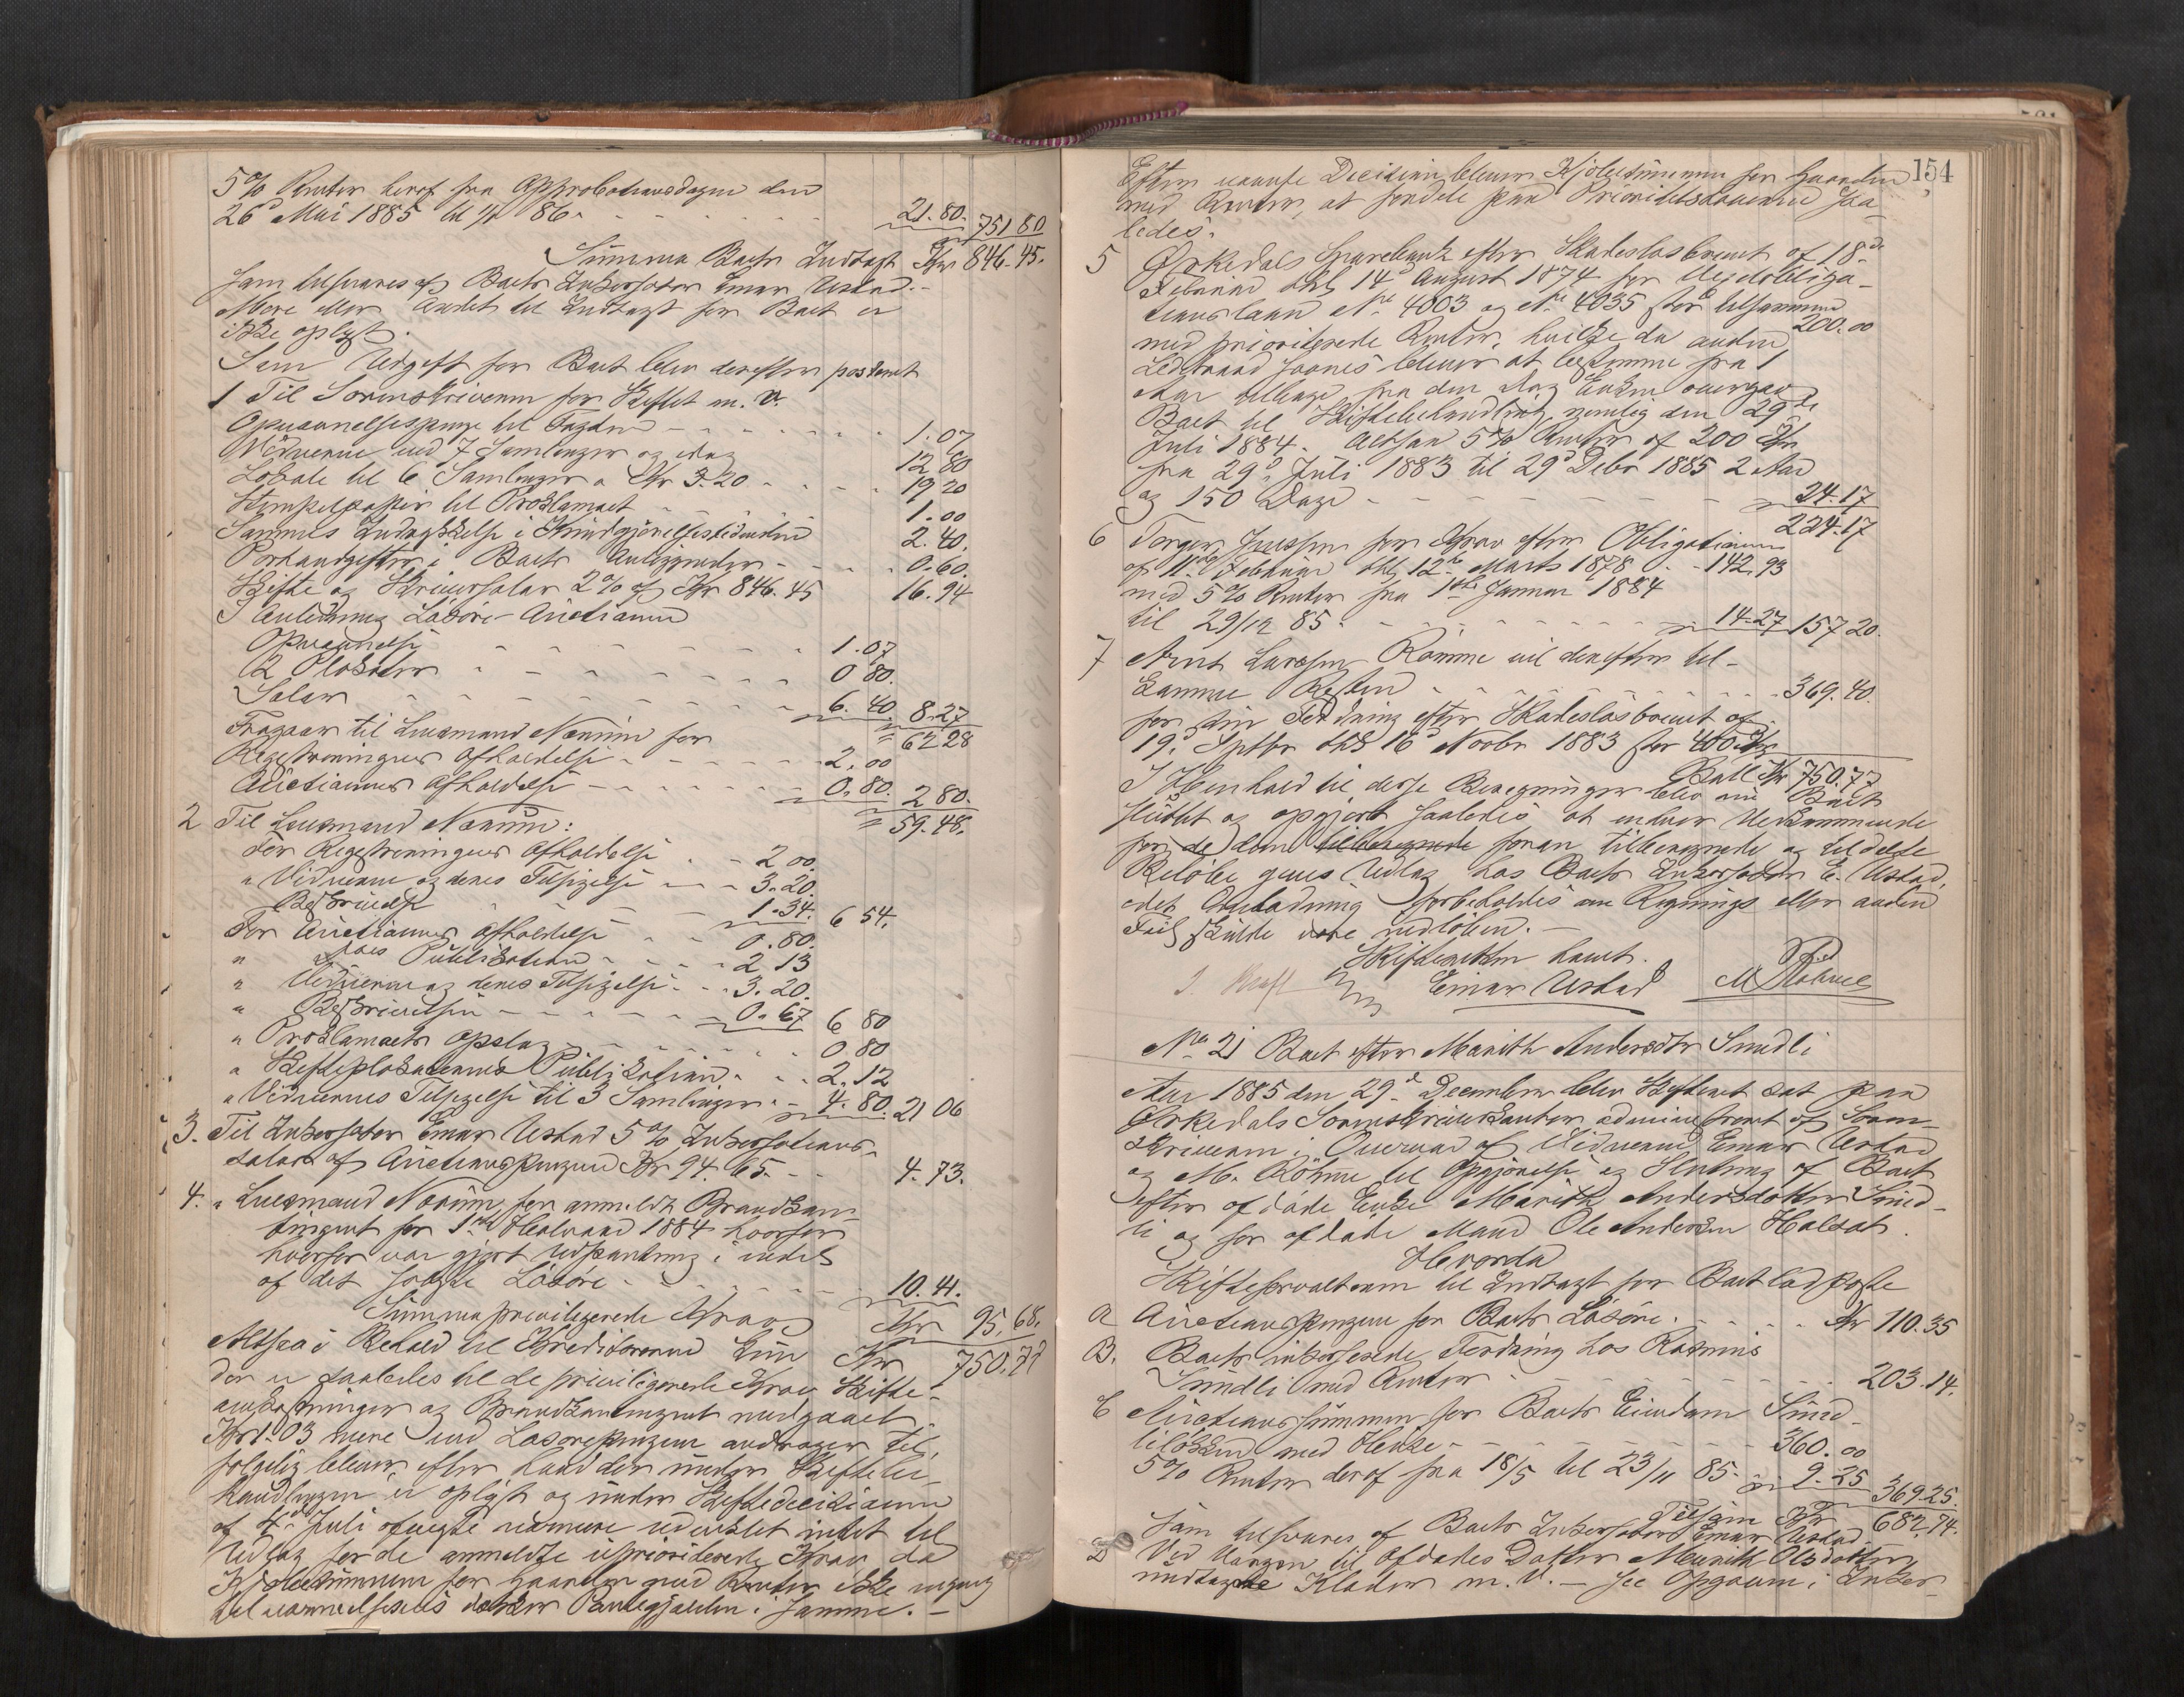 5% Renter heraf fra Approbationsdagen den
26de Mai 1885 til 1/1 86. - - - 21.80. 751 80
Summa Boets Indtægt Kr 846.45.
som tilsvares af Boets Inkassator Einar Ustad.-
More eller Andet til Indtægt for Boet er
ikke oplyst.
Som Udgift for Boet blev derefter posteret
1 Til Sorenskriveren for Skiftet m. v.
Opævnelsespenge til Fogden - - - 1.07
Vidnerne ved 7 Samlinger og idag 12 80
Lokale til 6 Samlinger a Kr 3.20 - - - 19 20
Stempelpapir til Proklamaet - - - 1.00
Sammes Indrykkelse i Kundgjørelsestidenden 2.40.
Porto i Boets Anliggender - - - 0.60.
Skifte og Skriversalær 2% af Kr 846.45 16.94
I Anledning Løsøre-Auctionen
Opævnelse - - - 1.07
2 Plakater - - - 0 80.
Salær - - - 6.40. 8.27
62 28
Fragaar til Lensmand Norum for
Registreringens Afholdelse - - - 2.00
Auctionens Afholdelse - - - 0.80. 2 80.
59.48.
2 Til Lensmand Norum:
For Registreringens Afholdelse - - 2 00
" Vidnerne og deres Tilsigelse - - 3.20.
Beskrivelse - - 1.34. 6 54.
For Auctionens Afholdelse - - 0.80.
" dens Publikation - - - 2 13
" Vidnerne og deres Tilsigelse - - 3.20.
" Beskrivelsen - - - 0.67 6 80
" Proklamaets Opslag - - - 0 80
" Skifteplakatens Publikation - - 2.12
" Vidnernes Tilsigelse til 3 Samlinger - 4.80. 21 06
3. Til Inkassator Einar Ustad 5% Inkassations-
salær af Auctionspengene Kr 94.65. - - 4.73.
4. " Lensmand Norum for anmeldt Brandkon-
tingent for 1ste Halvaar 1884 hvorfor
hvorfor var gjort Udpantning i endel
af det solgte Løsøre - - - 10.41.
Summa privilegerede Krav Kr 95.68.
Altsaa i Behold til Kreditorerne kun Kr 750.77
Der er saaledes til de privilegerede Krav Skifte-
omkostninger og Brandkontingent medgaaet
Kr 1.03 mere end Løsørepengene andrager til,
folgelig bliver, efter hvad der under Skiftebe-
handlingen er oplyst og under Skiftedecisionen
af 4de Juli afsagte nærmere udviklet intet til
Udlæg for de anmeldte uprioriterede Krav, da
Kjøbesummen for Gaarden med Renter ikke engang
tilnærmelsesvis dækker Pantegjælden i samme.-
154
Efter nævnte Decision bliver Kjøbesummen for Gaarden
med Renter, at fordele paa Prioritetshaverne saa-
ledes.
5 Orkedals Sparebank efter Skadesløsbrevet af 18de
Februar thl 14de August 1874 for Vexelobliga-
tionslaan No 4003 og No 4035 stor tilsammen 200.00
med prioriterede Renter, hvilke da anden
Ledetraad savnes bliver at bestemme fra 1
Aar tilbage fra den Dag Enken overgav
Boet til Skiftebehandling nemlig den 29de
Juli 1884. Altsaa 5% Renter af 200 Kr
fra 29de Juli 1883 til 29de Decbr 1885 2 Aar
og 150 Dage - - - 24.17
224.17
6 Torger Jenssen for Krav efter Obligationen
af 11te Februar thl 12te Marts 1878 - - 142.93
med 5% Renter fra 1ste Januar 1884
til 29/12 85 - - - 14.27 157 20.
7 Arnt Larssen Römme vil derefter til-
komme Resten - - - 369.40.
for sin Fordring efter Skadesløsbrevet af
19de Septbr thl 16de Novbr 1883 stor 400 Kr
Ball Kr 750.77
I Henhold til disse Beregninger blev nu Boet
sluttet og opgjort saaledes at enhver Vedkommende
for de dem tilberegnede foran tilberegnede og tildelte
Beløbe gives Udlæg hos Boets Inkassator E. Ustad,
idet Anledning forbeholdes om Regnings eller anden
Feil skulde være indløben.-
Skifteretten hævet.
Einar Ustad M Römme
No 21 Boet efter Marith Andersdtr Smedli
Aar 1885 den 29de December blev Skifteret sat paa
Orkedals Sorenskriverkontor, administreret af Soren-
skriveren i Overvær af Vidnerne Einar Ustad
og M. Römme til Opgjørelse og Slutning af Boet
efter afdøde Enke Marith Andersdatter Smed-
li og før afdøde Mand Ole Andersen Holsæt.
Hvorda
Skifteforvalteren til Indtægt for Boet lod posere
A Auctionspengene for Boets Løsøre - - - Kr 110.35
B. Boets inkasserede Fordring hos Rasmus
Smedli med Renter - - - 203.14.
C Auctionssummen for Boets Eiendom Smed-
liløkken med Huse - - - 360.00
5% Renter deraf fra 18/5 til 23/11 85 - 9.25 369.25.
Tilsam Kr 682.74.
som tilsvares af Boets Inkassator Einar Ustad.
D Ved Vargen til Afdødes Datter Marith Olsdatter
modtagne Klæder m. V. - see Opgaven i Inkas-